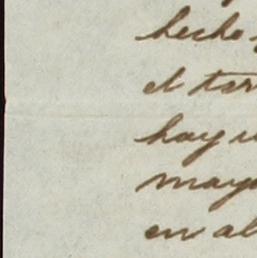 hecho
el tar
hay u
mayo
en al